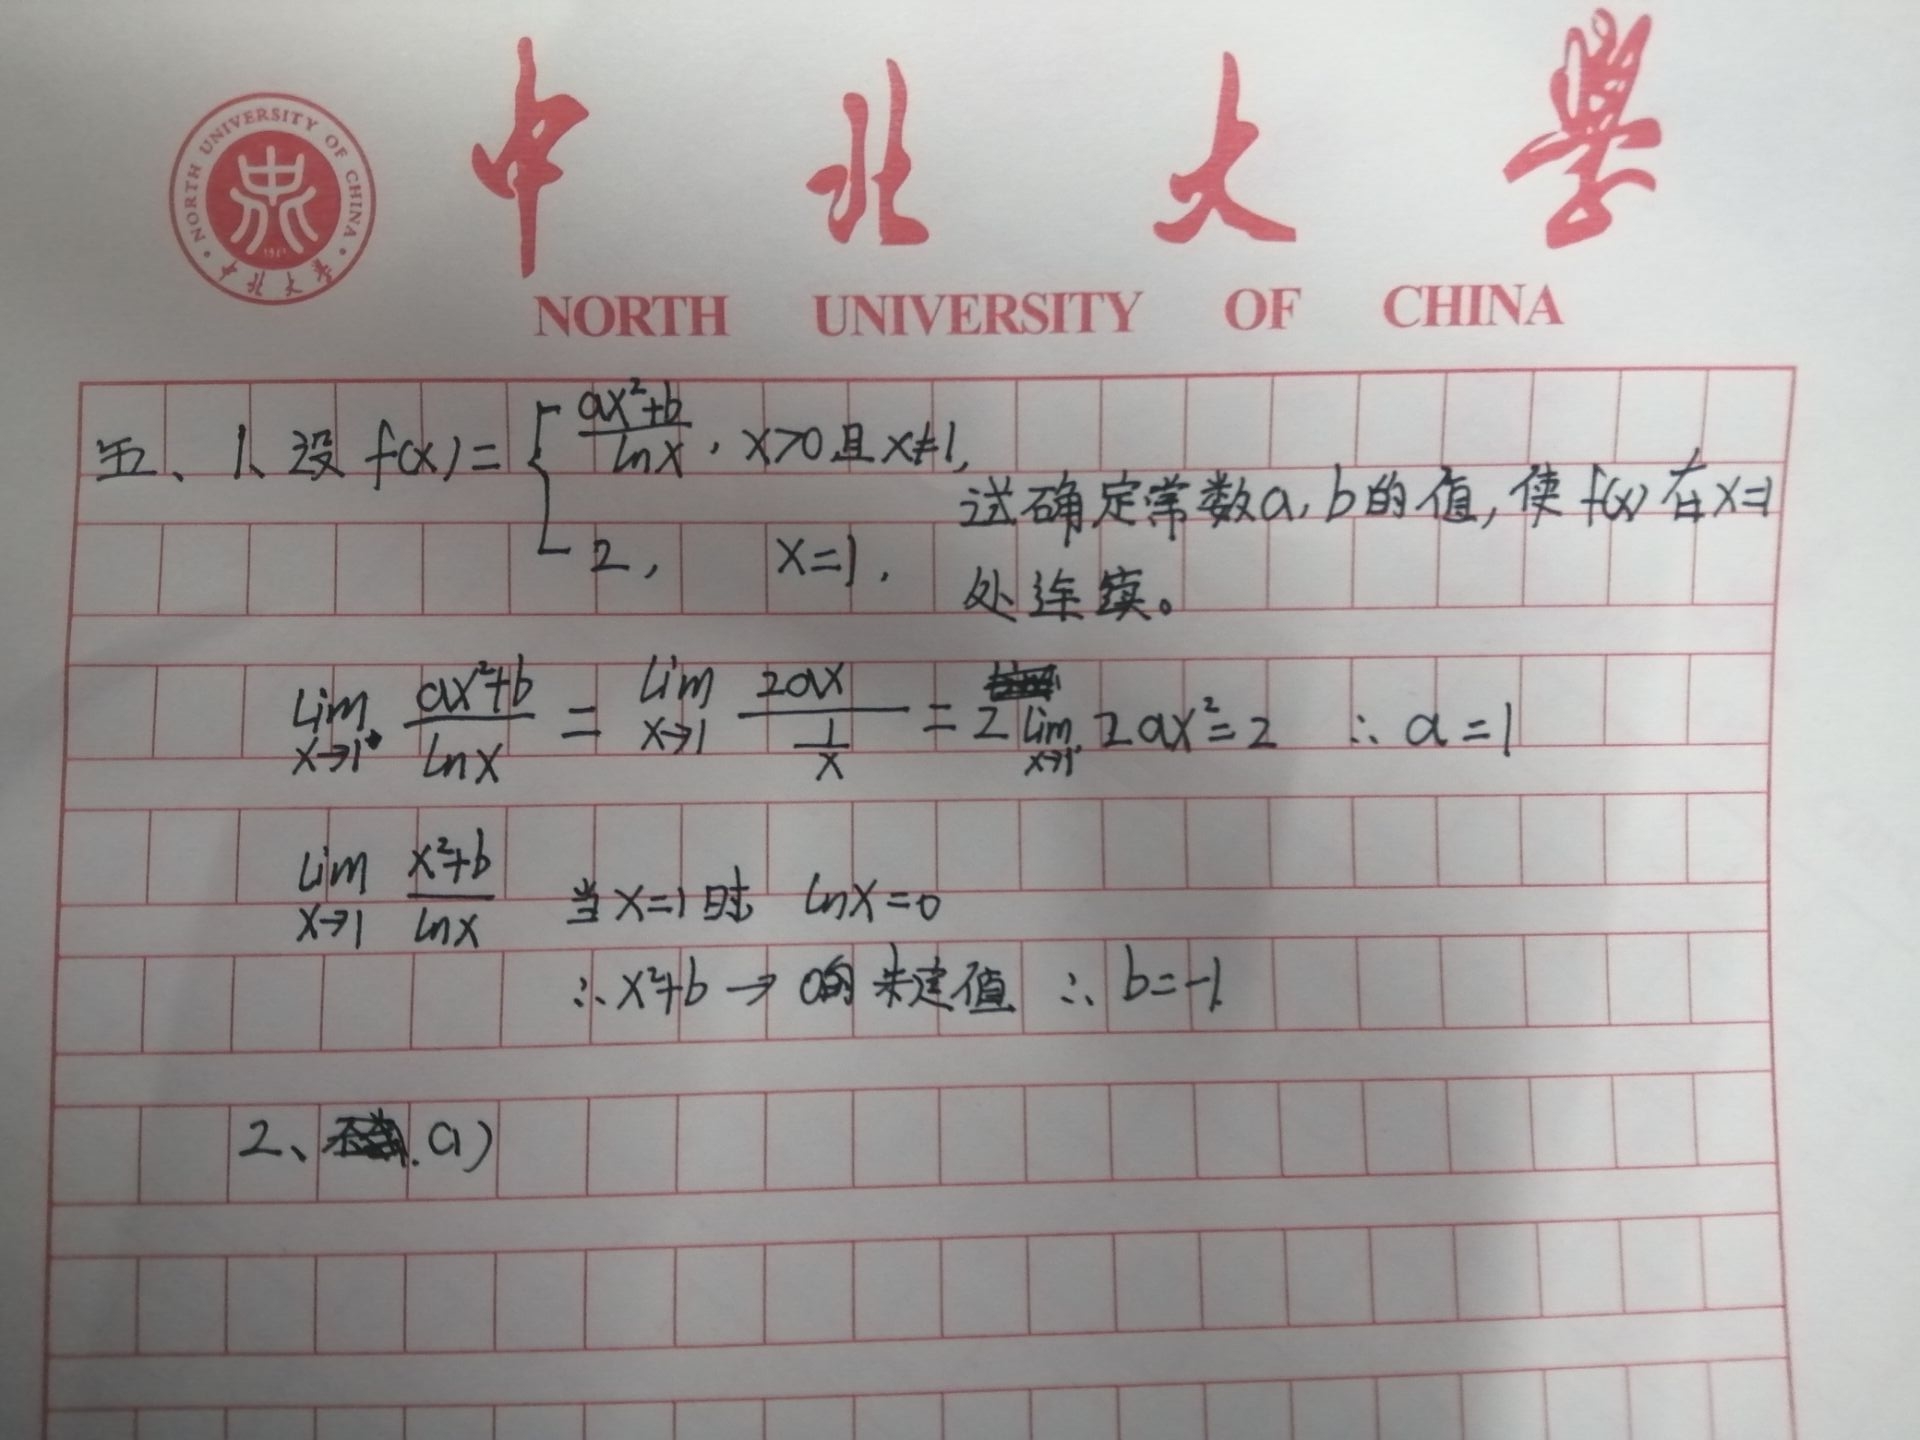 NORTH UNIVERSITY OF CHINA
中北大学
中北大学
NORTH UNIVERSITY OF CHINA
五、1、设 f(x)= { (ax²+b)/(lnx), x>0且x≠1,
2, x=1.
试确定常数a,b的值,使f(x)在x=1
处连续。
lim x→1 (ax²+b)/(lnx) = lim x→1 2ax/(1/x) = 2 lim x→1 2ax²=2 ∴ a=1
lim x→1 (x²+b)/(lnx) 当x=1时 lnx=0
∴x²+b→0的未定值 ∴ b=-1
2、a)